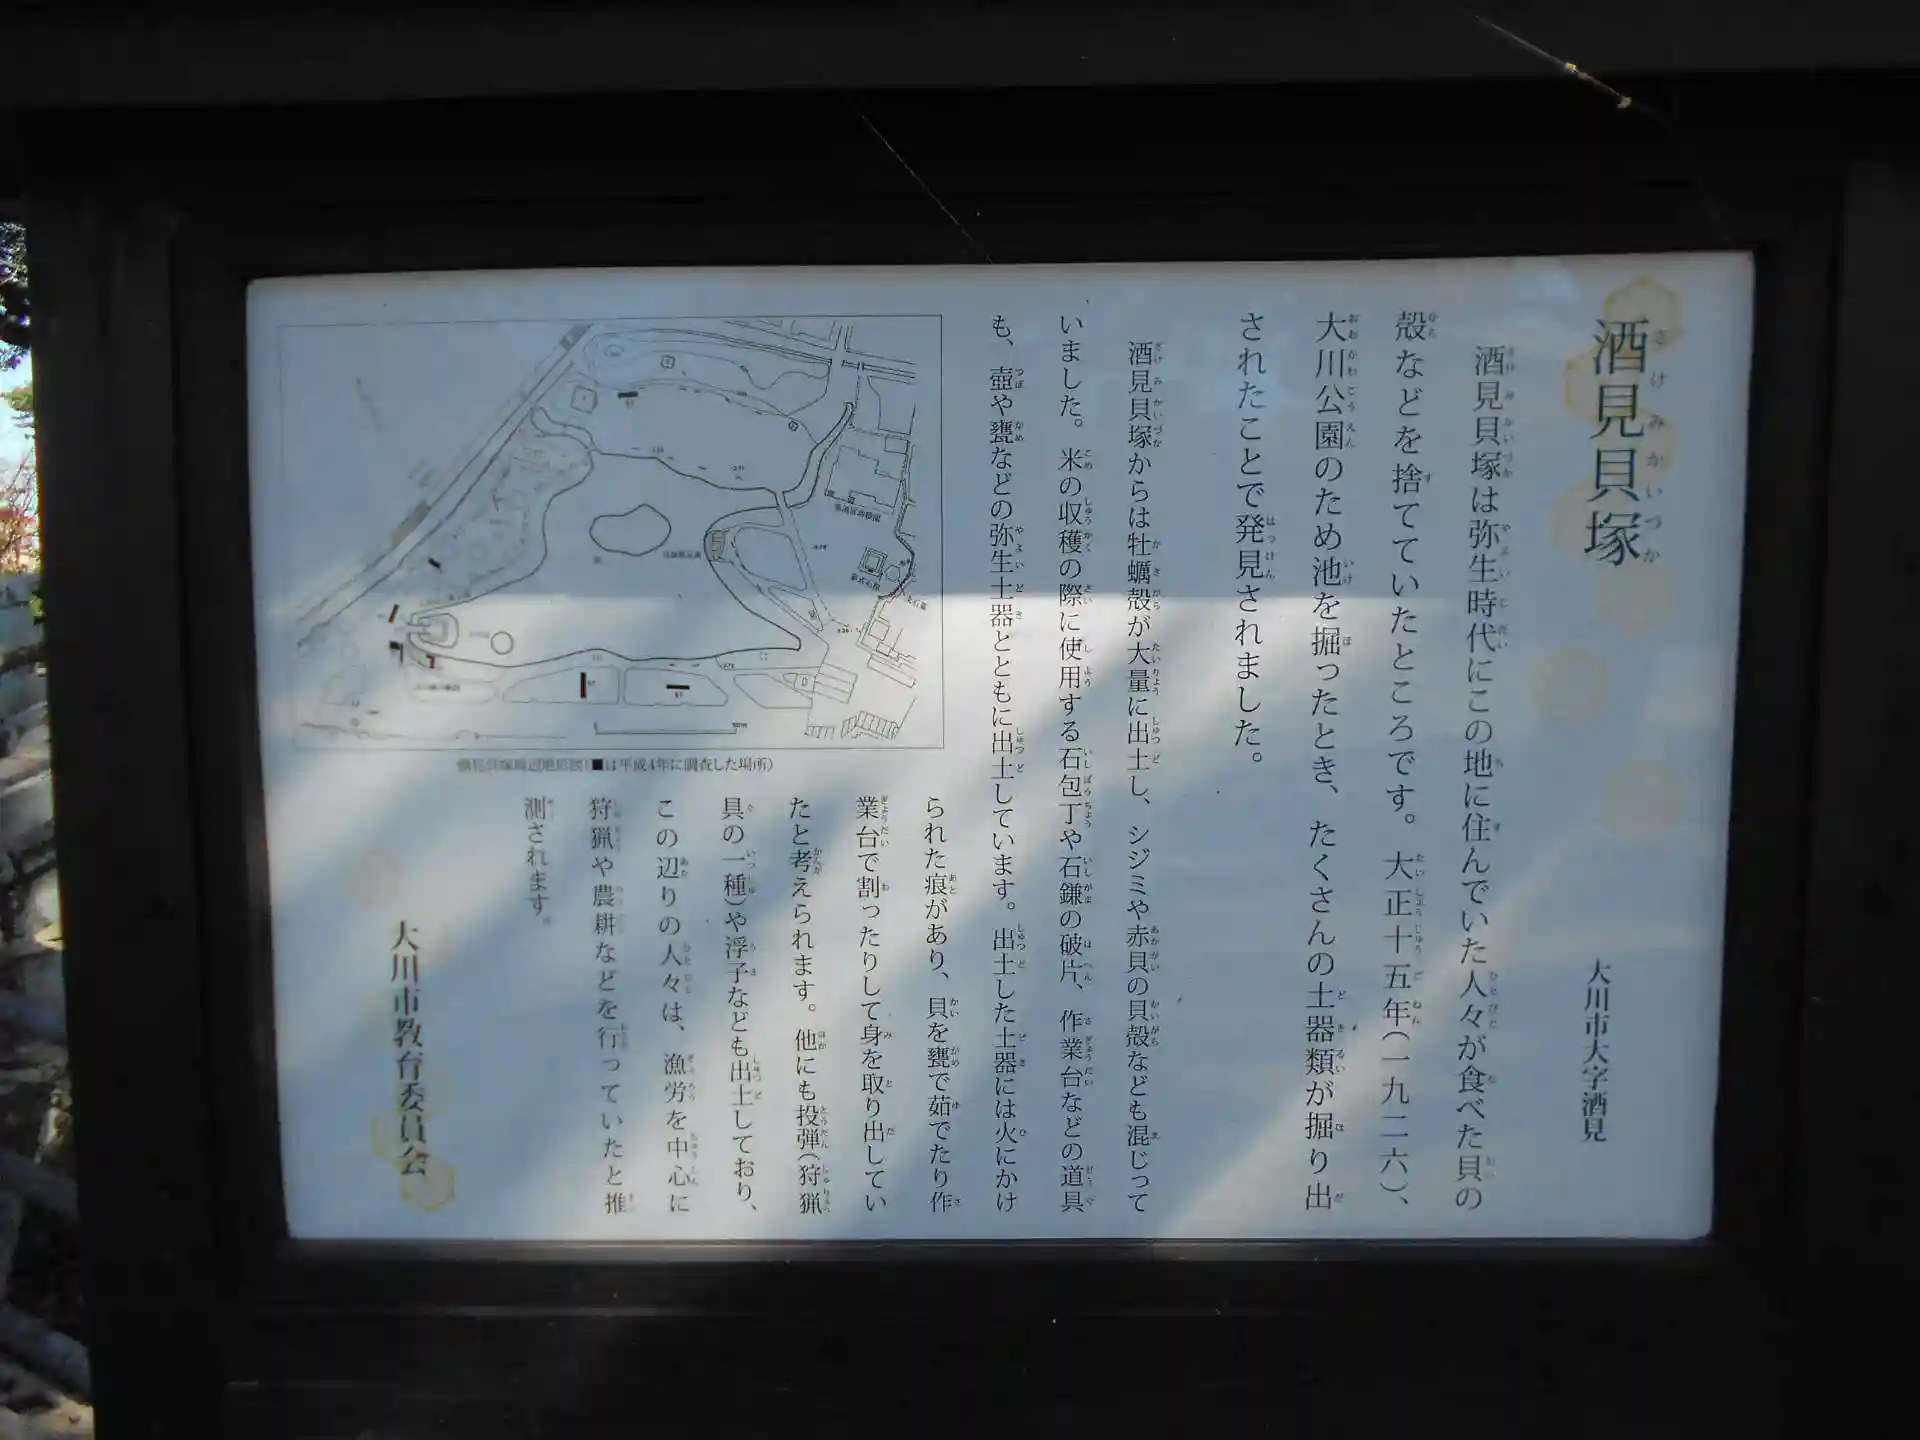 酒見貝塚
大川市大字酒見
酒見貝塚は弥生時代にこの地に住んでいた人々が食べた貝の
殻などを捨てていたところです。大正十五年(一九二六)、
大川公園のため池を掘ったとき、たくさんの土器類が掘り出
されたことで発見されました。
酒見貝塚からは牡蠣殻が大量に出土し、シジミや赤貝の貝殻なども混じって
いました。米の収穫の際に使用する石包丁や石鎌の破片、作業台などの道具
も、壺や甕などの弥生土器とともに出土しています。出土した土器には火にかけ
られた痕があり、貝を甕で茹でたり作
業台で割ったりして身を取り出してい
たと考えられます。他にも投弾(狩猟
具の一種)や浮子なども出土しており、
この辺りの人々は、漁労を中心に
狩猟や農耕などを行っていたと推
測されます。
大川市教育委員会
酒見貝塚周辺地形図(■は平成4年に調査した場所)